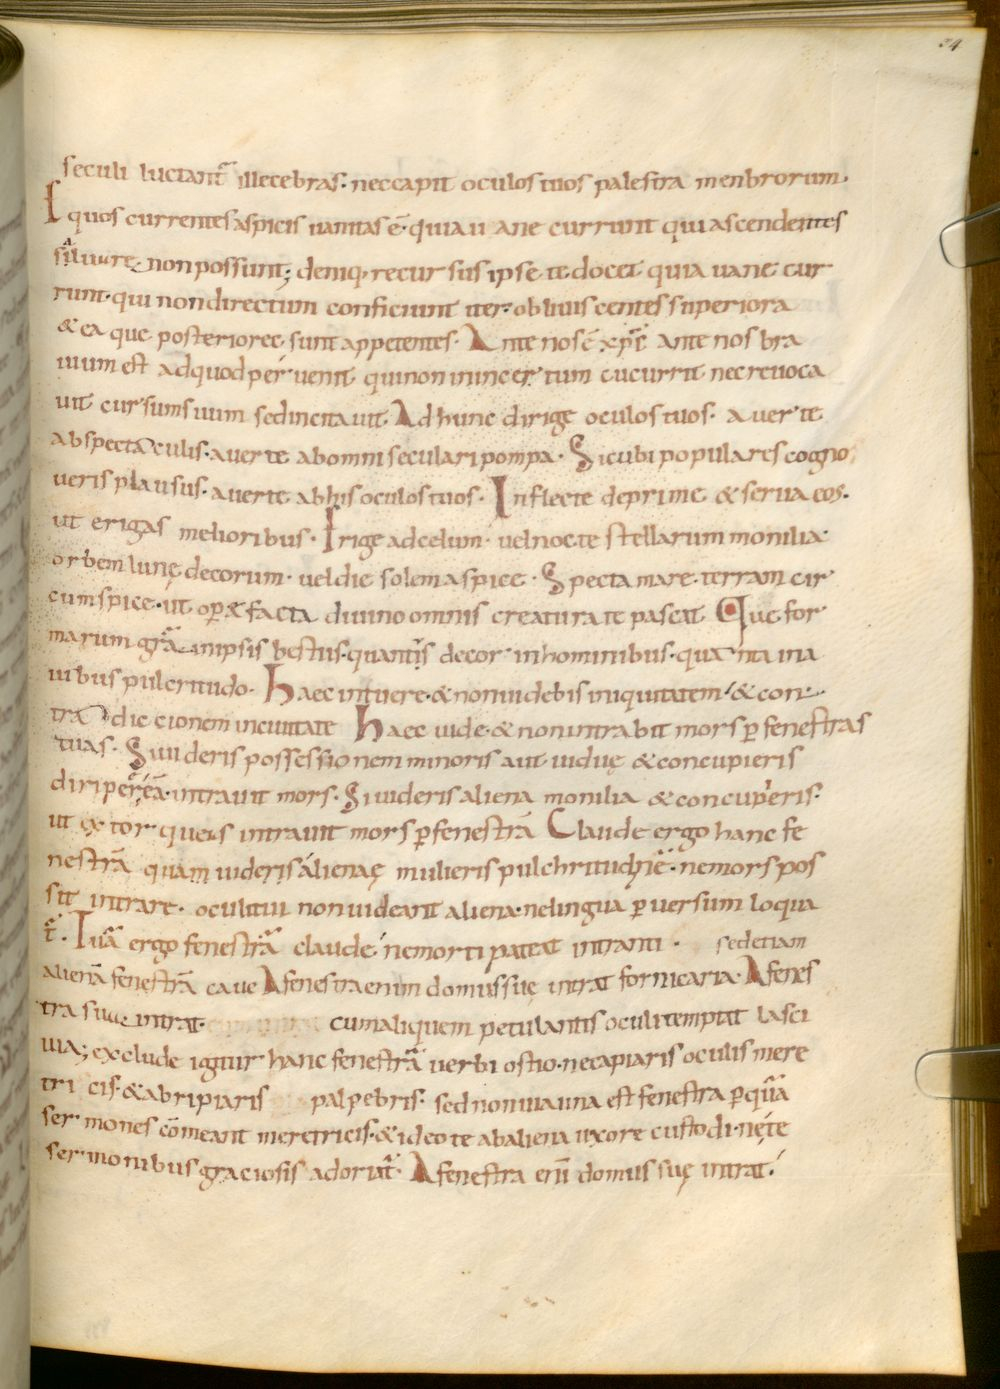 34
seculi luctant᷑ illecebras · nec capit oculos tuos palestra menbrorum ·
Et quos currentes aspicis uanitas ē · quia uane currunt qui ascendentes
non possunt ; deniq; recursus ipse te docet quia uane cur
runt · qui non directum conficiunt iter · obliuiscentes superiora
& ea que posteriores sunt appetentes · Ante nos ē xp̄c ante nos bra
uium est ad quod peruenit qui non in incertum cucurrit nec reuoca
uit cursum suum sed incitauit · Ad hunc dirige oculos tuos · auerte
ab spectaculis · auerte ab omni seculari pompa · Sicubi populares cogno
ueris plausus · auerte ab his oculos tuos · Inflecte deprime & serua eos ·
ut erigas melioribus · Erige ad celum · uel nocte stellarum monilia ·
orbem lunę decorum · uel die solem aspice · Specta mare · terram cir
cumspice · ut facta diuino omnis creatura te pascat Que for
marum grā in ipsis bestiis · quantus decor in hominibus · quanta in a
uibus pulcritudo · Haec intuere · & non uidebis iniquitatem · & con
tradictionem in ciuitate Haec uide · & non intrabit mors p̱ fenestras
tuas · Si uideris possessionem minoris aut uiduę & concupieris
diripere eā · intrauit mors · Si uideris aliena monilia & concupieris ·
ut extorqueas intrauit mors p̱ fenestrā Claude ergo hanc fe
nestrā quam uideris alienaę mulieris pulchritudinē · ne mors pos
sit intrare · oculi tui non uideant aliena · ne lingua p̱uersum loqua
t᷑ · Tuā ergo fenestrā claude ne morti pateat intranti · sed etiam
alienā fenestrā caue A fenestra enim domus suę intrat fornicaria · A fenes
tra sua intrat · cum aliquem petulantis oculi temptat lasci
uia ; exclude igitur hanc fenestrā uerbi ostio · ne capiaris oculis mere
tricis · & abripiaris palpebris · sed non una est fenestra p̱ quā
sermones cōmeant meretricis · & ideo te ab aliena uxore custodi · ne te
sermonibus graciosis adoriat᷑ · A fenestra eni̅ domus suę intrat ·